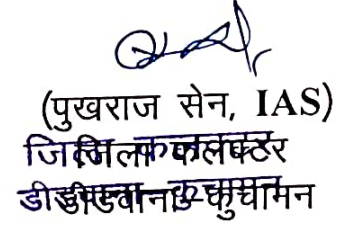 (पुखराज सेन, IAS)
जिला कलक्टर
डीडवाना-कुचामन